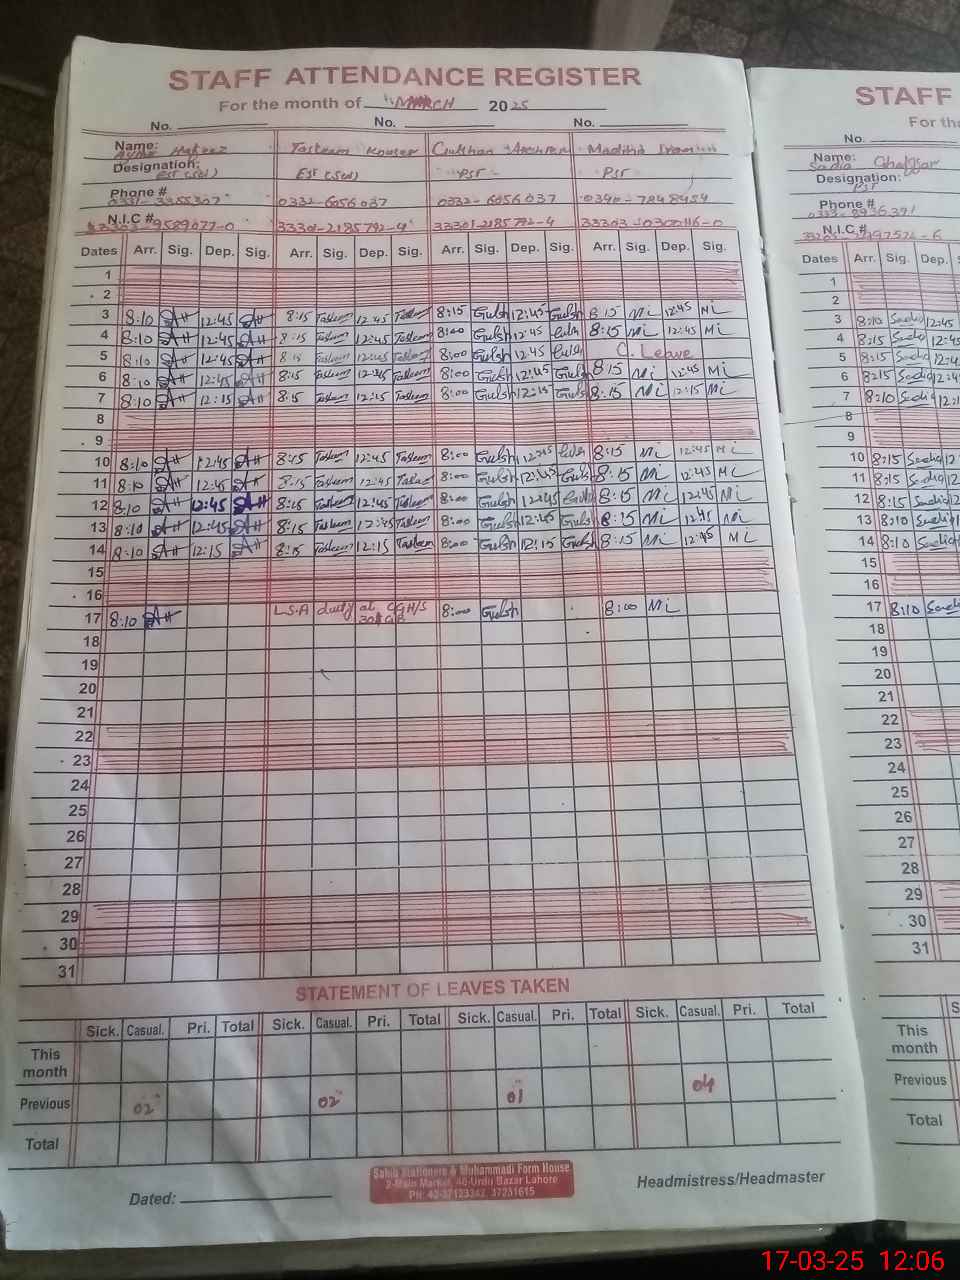 STAFF ATTENDANCE REGISTER
For the month of MARCH 2025
No. No. No.
Name: Hafeez Tasleem Kouser Gulshan Madiha
Designation: EST (Sci) EST (Sci) PST PST
Phone # 0332-6056037 0332-6056037
N.I.C # 33301-2185792-4 33301-2185792-4
Dates Arr. Sig. Dep. Sig. Arr. Sig. Dep. Sig. Arr. Sig. Dep. Sig. Arr. Sig. Dep. Sig.
1
2
3 8:10 AH 12:45 AH 8:15 Tasleem 12:45 Tasleem 8:15 Gulsh 12:45 Gulsh 8:15 Mi 12:45 Mi
4 8:10 AH 12:45 AH 8:15 Tasleem 12:45 Tasleem 8:00 Gulsh 12:45 Gulsh 8:15 Mi 12:45 Mi
5 8:10 AH 12:45 AH 8:15 Tasleem 12:45 Tasleem 8:00 Gulsh 12:45 Gulsh C. Leave
6 8:10 AH 12:45 AH 8:15 Tasleem 12:45 Tasleem 8:00 Gulsh 12:45 Gulsh 8:15 Mi 12:45 Mi
7 8:10 AH 12:15 AH 8:15 Tasleem 12:15 Tasleem 8:00 Gulsh 12:15 Gulsh 8:15 Mi 12:15 Mi
8
9
10 8:10 AH 12:45 AH 8:15 Tasleem 12:45 Tasleem 8:00 Gulsh 12:45 Gulsh 8:15 Mi 12:45 Mi
11 8:10 AH 12:45 AH 8:15 Tasleem 12:45 Tasleem 8:00 Gulsh 12:45 Gulsh 8:15 Mi 12:45 Mi
12 8:10 AH 12:45 AH 8:15 Tasleem 12:45 Tasleem 8:00 Gulsh 12:45 Gulsh 8:15 Mi 12:45 Mi
13 8:10 AH 12:45 AH 8:15 Tasleem 12:45 Tasleem 8:00 Gulsh 12:45 Gulsh 8:15 Mi 12:45 Mi
14 8:10 AH 12:15 AH 8:15 Tasleem 12:15 Tasleem 8:00 Gulsh 12:15 Gulsh 8:15 Mi 12:45 Mi
15
16
17 8:10 AH L.S.A duty at 8:00 Gulsh 8:00 Mi
18
19
20
21
22
23
24
25
26
27
28
29
30
31
STATEMENT OF LEAVES TAKEN
Sick. Casual. Pri. Total Sick. Casual. Pri. Total Sick. Casual. Pri. Total Sick. Casual. Pri. Total
This month
Previous 02 02 01 04
Total
Dated:
Sahib Stationers & Muhammadi Form House
2-Main Market, 40-Urdu Bazar Lahore
Ph: 42-37123342, 37231615
Headmistress/Headmaster
STAFF
For th
No.
Name: Sadia
Designation: PST
Phone #
N.I.C.#
Dates Arr. Sig. Dep.
1
2
3 8:10 Sadia 12:45
4 8:10 Sadia 12:45
5 8:15 Sadia 12:4
6 8:15 Sadia 12:4
7 8:10 Sadia 12:1
8
9
10 8:15 Sadia 12
11 8:15 Sadia 12
12 8:15 Sadia
13 8:10 Sadia
14 8:10 Sadia
15
16
17 8:10 Sadia
18
19
20
21
22
23
24
25
26
27
28
29
30
31
This month
Previous
Total
17-03-25 12:06